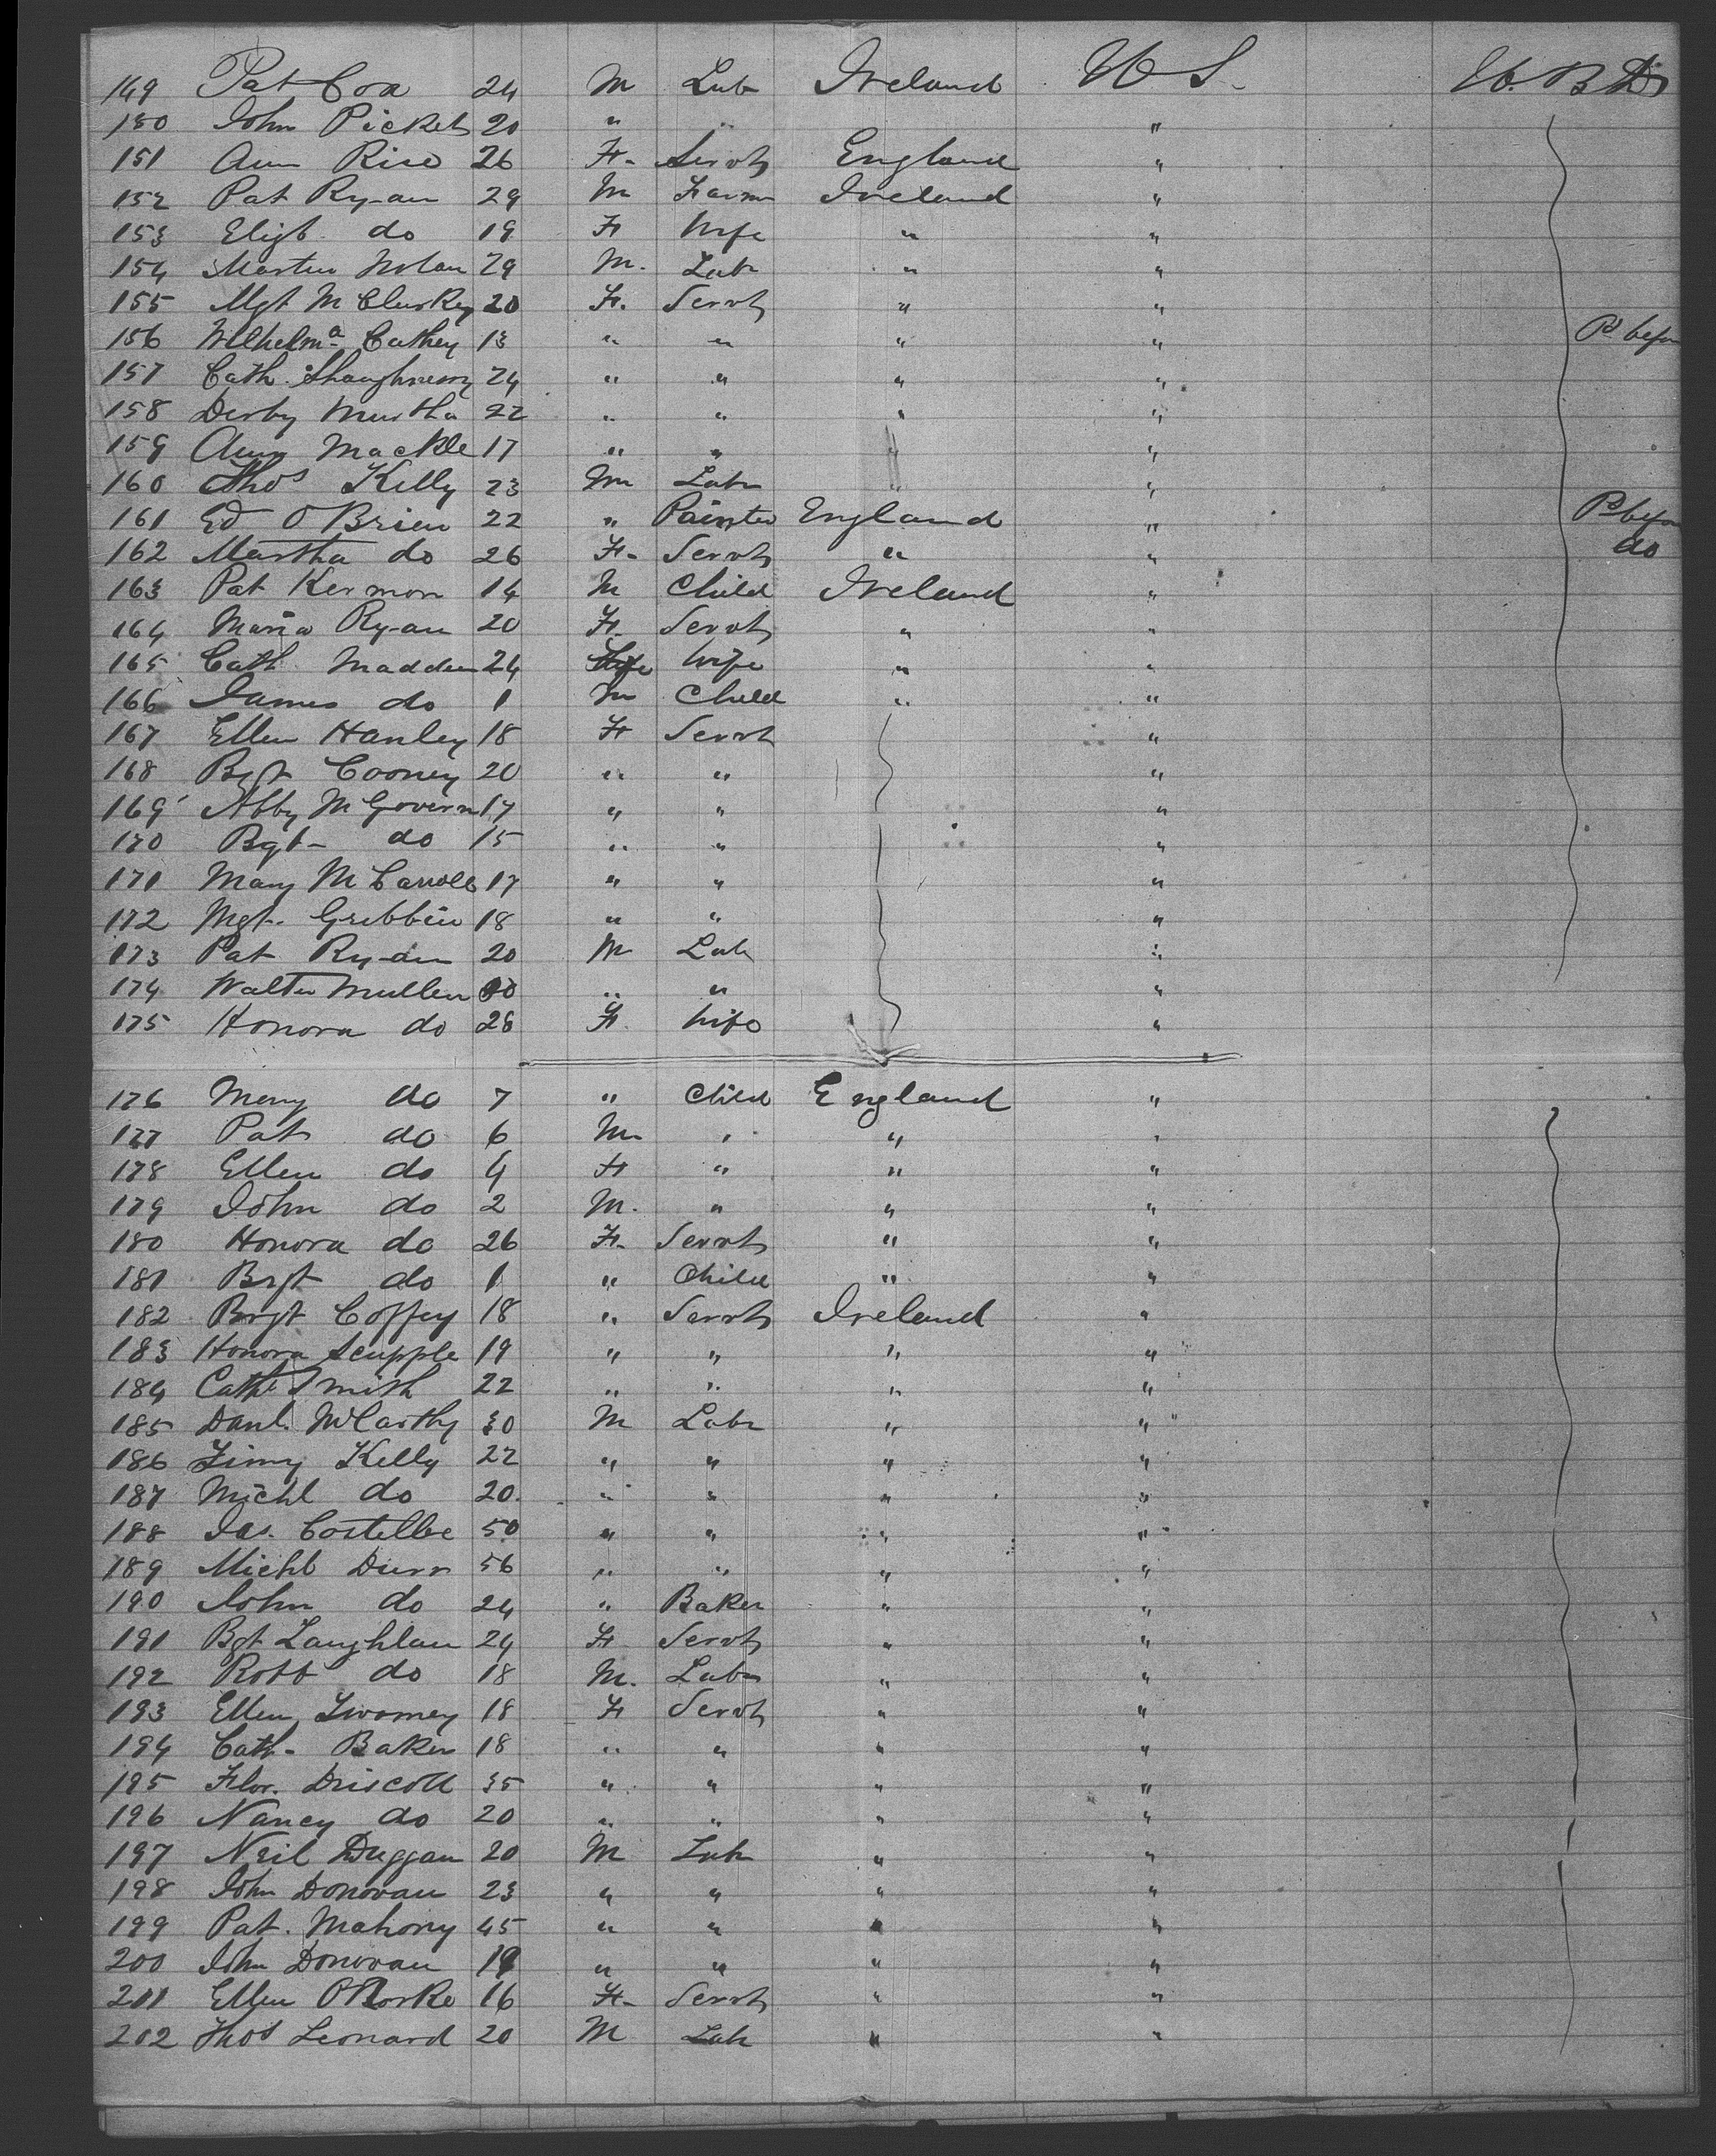 149 Pat Cox 24 M Lab Ireland U S
150 John Picket 20 " " "
151 Ann Rice 26 F. Servt England "
152 Pat Ryan 29 M Farmr Ireland "
153 Elizt do 19 F Wife " "
154 Martin Nolan 29 M. Labr " "
155 Mgt McCluskey 20 F. Servt " "
156 Wilhelma Cathey 13 " " " "
157 Cath. Shaughnessy 24 " " " "
158 Derby Murtha 22 " " " "
159 Ann Mackle 17 " " " "
160 Thos Kelly 23 M Labr " "
161 Ed O Brien 22 " Painter England "
162 Martha do 26 F. Servt " " do
163 Pat Kermon 14 M Child Ireland "
164 Maria Ryan 20 F. Servt " "
165 Cath Madden 24 Wife " "
166 James do 1 M Child " "
167 Ellen Hanley 18 F Servt "
168 Bgt Cooney 20 " " "
169 Abby McGovern 17 " " "
170 Bgt do 15 " " "
171 Mary McCarroll 17 " " "
172 Mgt. Gribbin 18 " " "
173 Pat Ryan 20 M Lab "
174 Walter Mullen " " "
175 Honora do 28 F. Wife "
176 Mary do 7 " Child England "
177 Pat do 6 M. " " "
178 Ellen do 4 F " " "
179 John do 2 M. " " "
180 Honora do 26 F. Servt " "
181 Brgt do 1 " Child " "
182 Brgt Coffey 18 " Servt Ireland "
183 Honora Scupple 19 " " " "
184 Cath Smith 22 " " " "
185 Danl. McCarthy 30 M Labr " "
186 Timy Kelly 22 " " " "
187 Michl do 20. " " " "
188 Jas. Costelloe 50 " " " "
189 Michl Durr 56 " " " "
190 John do 24 " Baker " "
191 Bgt Laughlan 24 F Servt " "
192 Robt do 18 M. Labr " "
193 Ellen Twomey 18 F Servt " "
194 Cath. Baker 18 " " " "
195 Flor. Driscoll 35 " " " "
196 Nancy do 20 " " " "
197 Neil Duggan 20 M Labr " "
198 John Donovan 23 " " " "
199 Pat. Mahony 45 " " " "
200 John Donovan 19 " " " "
201 Ellen O Rorke 16 F. Servt " "
202 Thos Leonard 20 M Lab " "